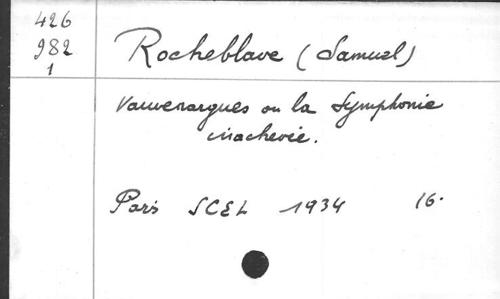 426
982
1
Rocheblave (Samuel)
Vauvenargues ou la Symphonie
inachevée.
Paris SCEL 1934 16°